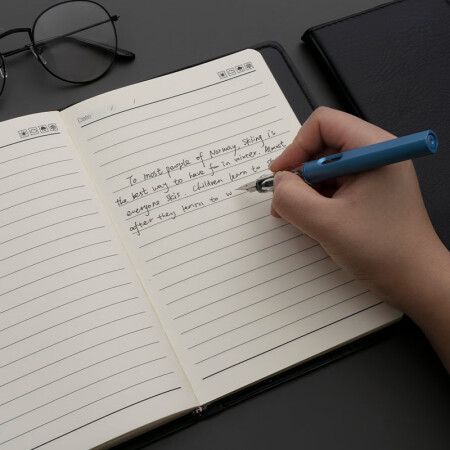 Date: / /
To most people of Norway. Skiing is
the best way to have fun in winter. Almost
everyone skis. Children learn to
after they learn to w